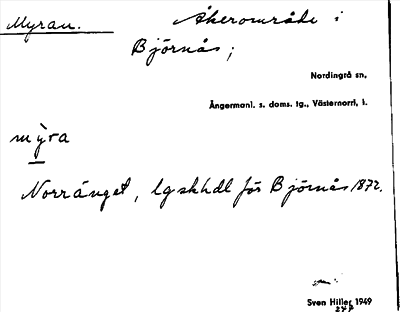 Myran. Åkerområde i
Björnås;
Nordingrå sn,
Ångermanl. s. doms. tg., Västernorrl, l.
mỳra
Norränget, lgskhdl för Björnås 1872.
Sven Hiller 1949
247